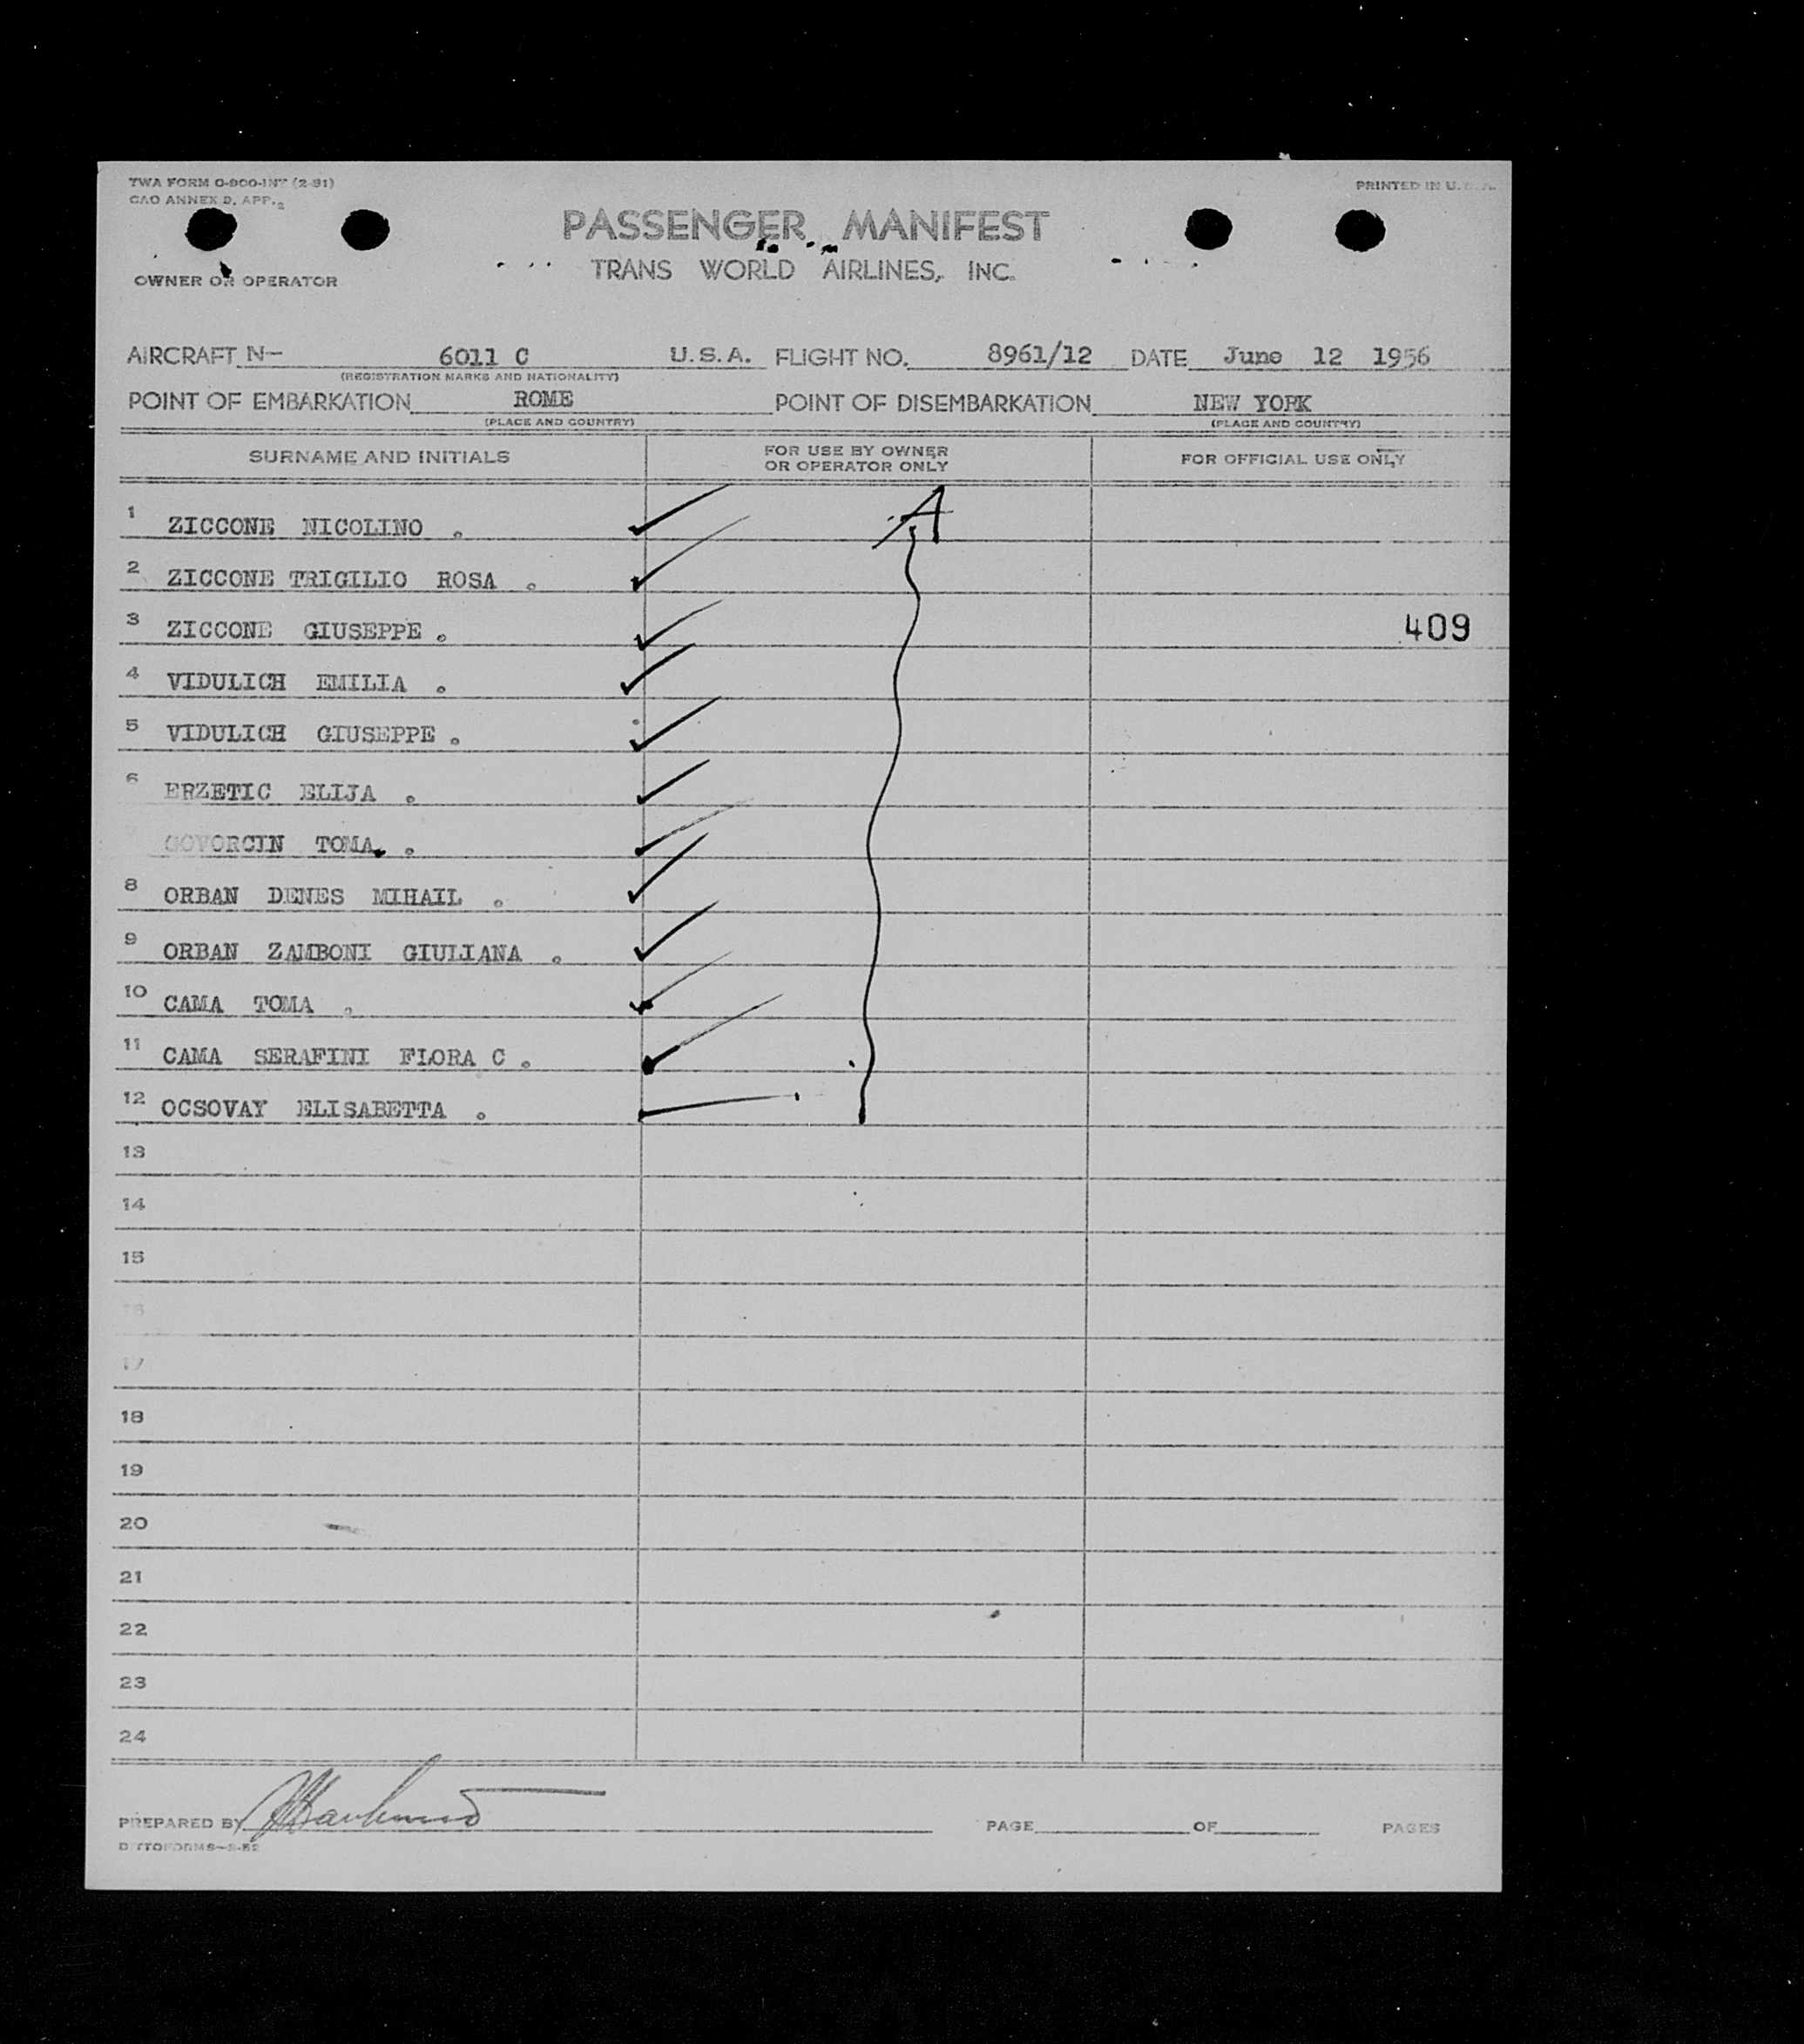 TWA FORM O-900-INT (2-51)
PRINTED IN U.S.A.
CAO ANNEX D. APP. 2
PASSENGER MANIFEST
TRANS WORLD AIRLINES, INC.
OWNER OR OPERATOR
AIRCRAFT N- 6011 C U.S.A. FLIGHT NO. 8961/12 DATE June 12 1956
(REGISTRATION MARKS AND NATIONALITY)
POINT OF EMBARKATION ROME POINT OF DISEMBARKATION NEW YORK
(PLACE AND COUNTRY) (PLACE AND COUNTRY)
SURNAME AND INITIALS FOR USE BY OWNER OR OPERATOR ONLY FOR OFFICIAL USE ONLY
1 ZICCONE NICOLINO . A
2 ZICCONE TRIGILIO ROSA .
3 ZICCONE GIUSEPPE . 409
4 VIDULICH EMILIA .
5 VIDULICH GIUSEPPE .
6 ERZETIC ELIJA .
GOVORCIN TOMA .
8 ORBAN DENES MIHAIL .
9 ORBAN ZAMBONI GIULIANA .
10 CAMA TOMA .
11 CAMA SERAFINI FLORA C .
12 OCSOVAY ELISABETTA .
13
14
15
16
17
18
19
20
21
22
23
24
PREPARED BY PAGE OF PAGES
DITTOFORMS-5-52